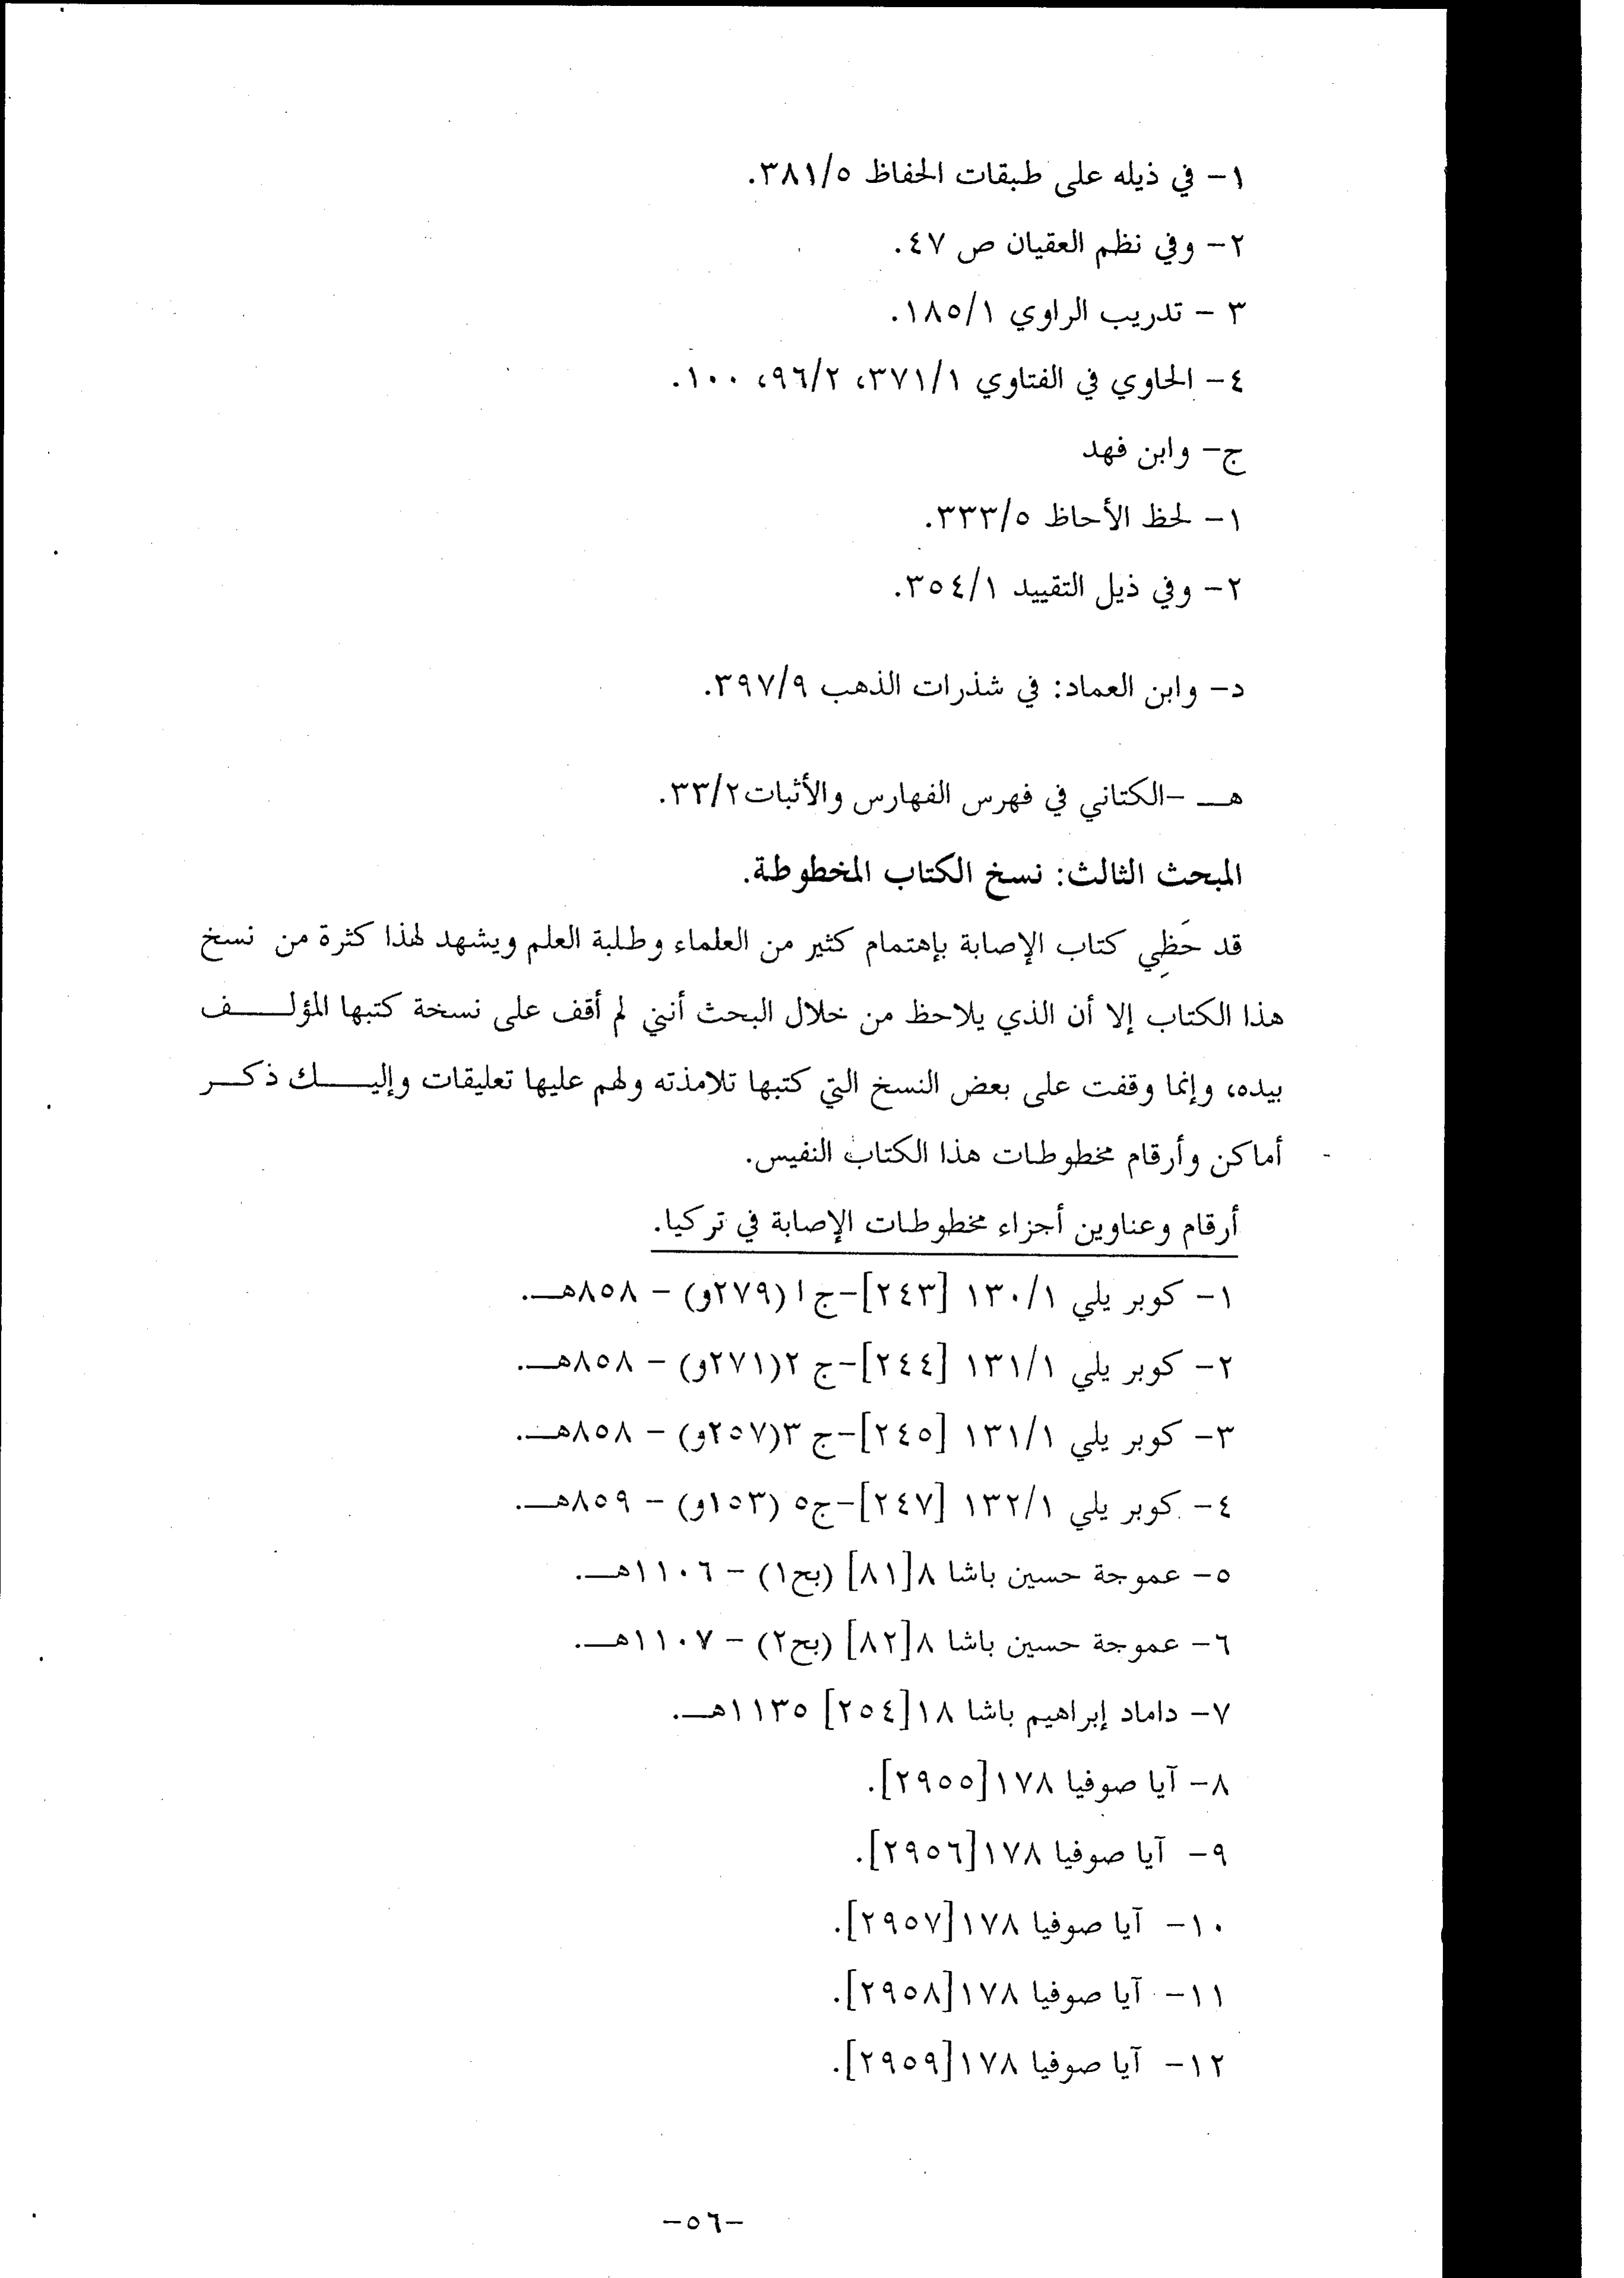 ١- في ذيله على طبقات الحفاظ ٣٨١/٥.
٢- وفي نظم العقيان ص ٤٧.
٣ - تدريب الراوي ١٨٥/١.
٤- الحاوي في الفتاوي ٣٧١/١، ٩٦/٢، ١٠٠.
ج- وابن فهد
١- لحظ الأحاظ ٣٣٣/٥.
٢- وفي ذيل التقييد ٣٥٤/١.
د- وابن العماد: في شذرات الذهب ٣٩٧/٩.
هـ -الكتاني في فهرس الفهارس والأثبات٣٣/٢.
المبحث الثالث: نسخ الكتاب المخطوطة.
قد حَظِي كتاب الإصابة بإهتمام كثير من العلماء وطلبة العلم ويشهد لهذا كثرة من نسخ
هذا الكتاب إلا أن الذي يلاحظ من خلال البحث أنني لم أقف على نسخة كتبها المؤلف
بيده، وإنما وقفت على بعض النسخ التي كتبها تلامذته ولهم عليها تعليقات وإليك ذكر
أماكن وأرقام مخطوطات هذا الكتاب النفيس.
أرقام وعناوين أجزاء مخطوطات الإصابة في تركيا.
١- كوبر يلي ١٣٠/١ [٢٤٣]-ج١ (٢٧٩و) - ٨٥٨هـ.
٢- كوبر يلي ١٣١/١ [٢٤٤]-ج ٢(٢٧١و) - ٨٥٨هـ.
٣- كوبر يلي ١٣١/١ [٢٤٥]-ج ٣(٢٥٧و) - ٨٥٨هـ.
٤- كوبر يلي ١٣٢/١ [٢٤٧]-ج٥ (١٥٣و) - ٨٥٩هـ.
٥- عموجة حسين باشا ٨[٨١] (بج١) - ١١٠٦هـ.
٦- عموجة حسين باشا ٨[٨٢] (بج٢) - ١١٠٧هـ.
٧- داماد إبراهيم باشا ١٨[٢٥٤] ١١٣٥هـ.
٨- آيا صوفيا ١٧٨[٢٩٥٥].
٩- آيا صوفيا ١٧٨[٢٩٥٦].
١٠- آيا صوفيا ١٧٨[٢٩٥٧].
١١- آيا صوفيا ١٧٨[٢٩٥٨].
١٢- آيا صوفيا ١٧٨[٢٩٥٩].
-٥٦-